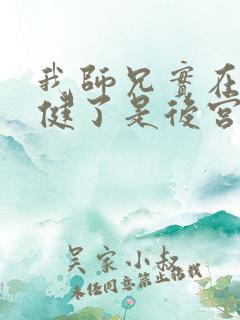 我師兄實在
健了是後宮
吴家小叔
未经同意禁止转载